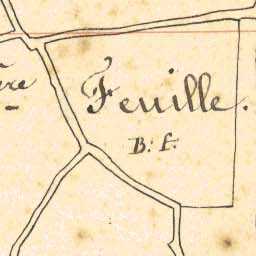 ère
Feuille.
B. f.